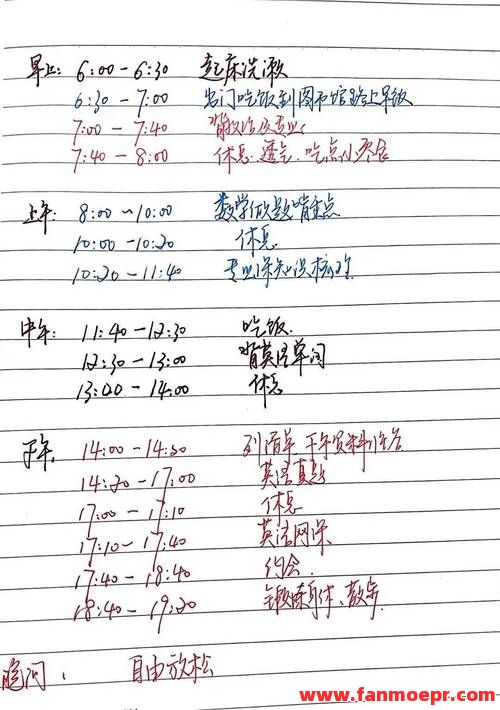 早上: 6:00-6:30 起床洗漱
6:30-7:00 出门吃饭到图书馆路上早饭
7:00-7:40 背政治及专业
7:40-8:00 休息、透气、吃点小零食
上午: 8:00~10:00 数学做题啃重点
10:00-10:20 休息
10:20-11:40 专业课知识
中午: 11:40-12:30 吃饭.
12:30-13:00 背英语单词
13:00-14:00 休息
下午. 14:00-14:30 列清单 下午资料
14:30-17:00 英语真题
17:00-17:10 休息
17:10-17:40 英语网课
17:40-18:40 约会.
18:40-19:20 锻炼身体、散步.
晚间: 自由放松
www.fanmoepr.com